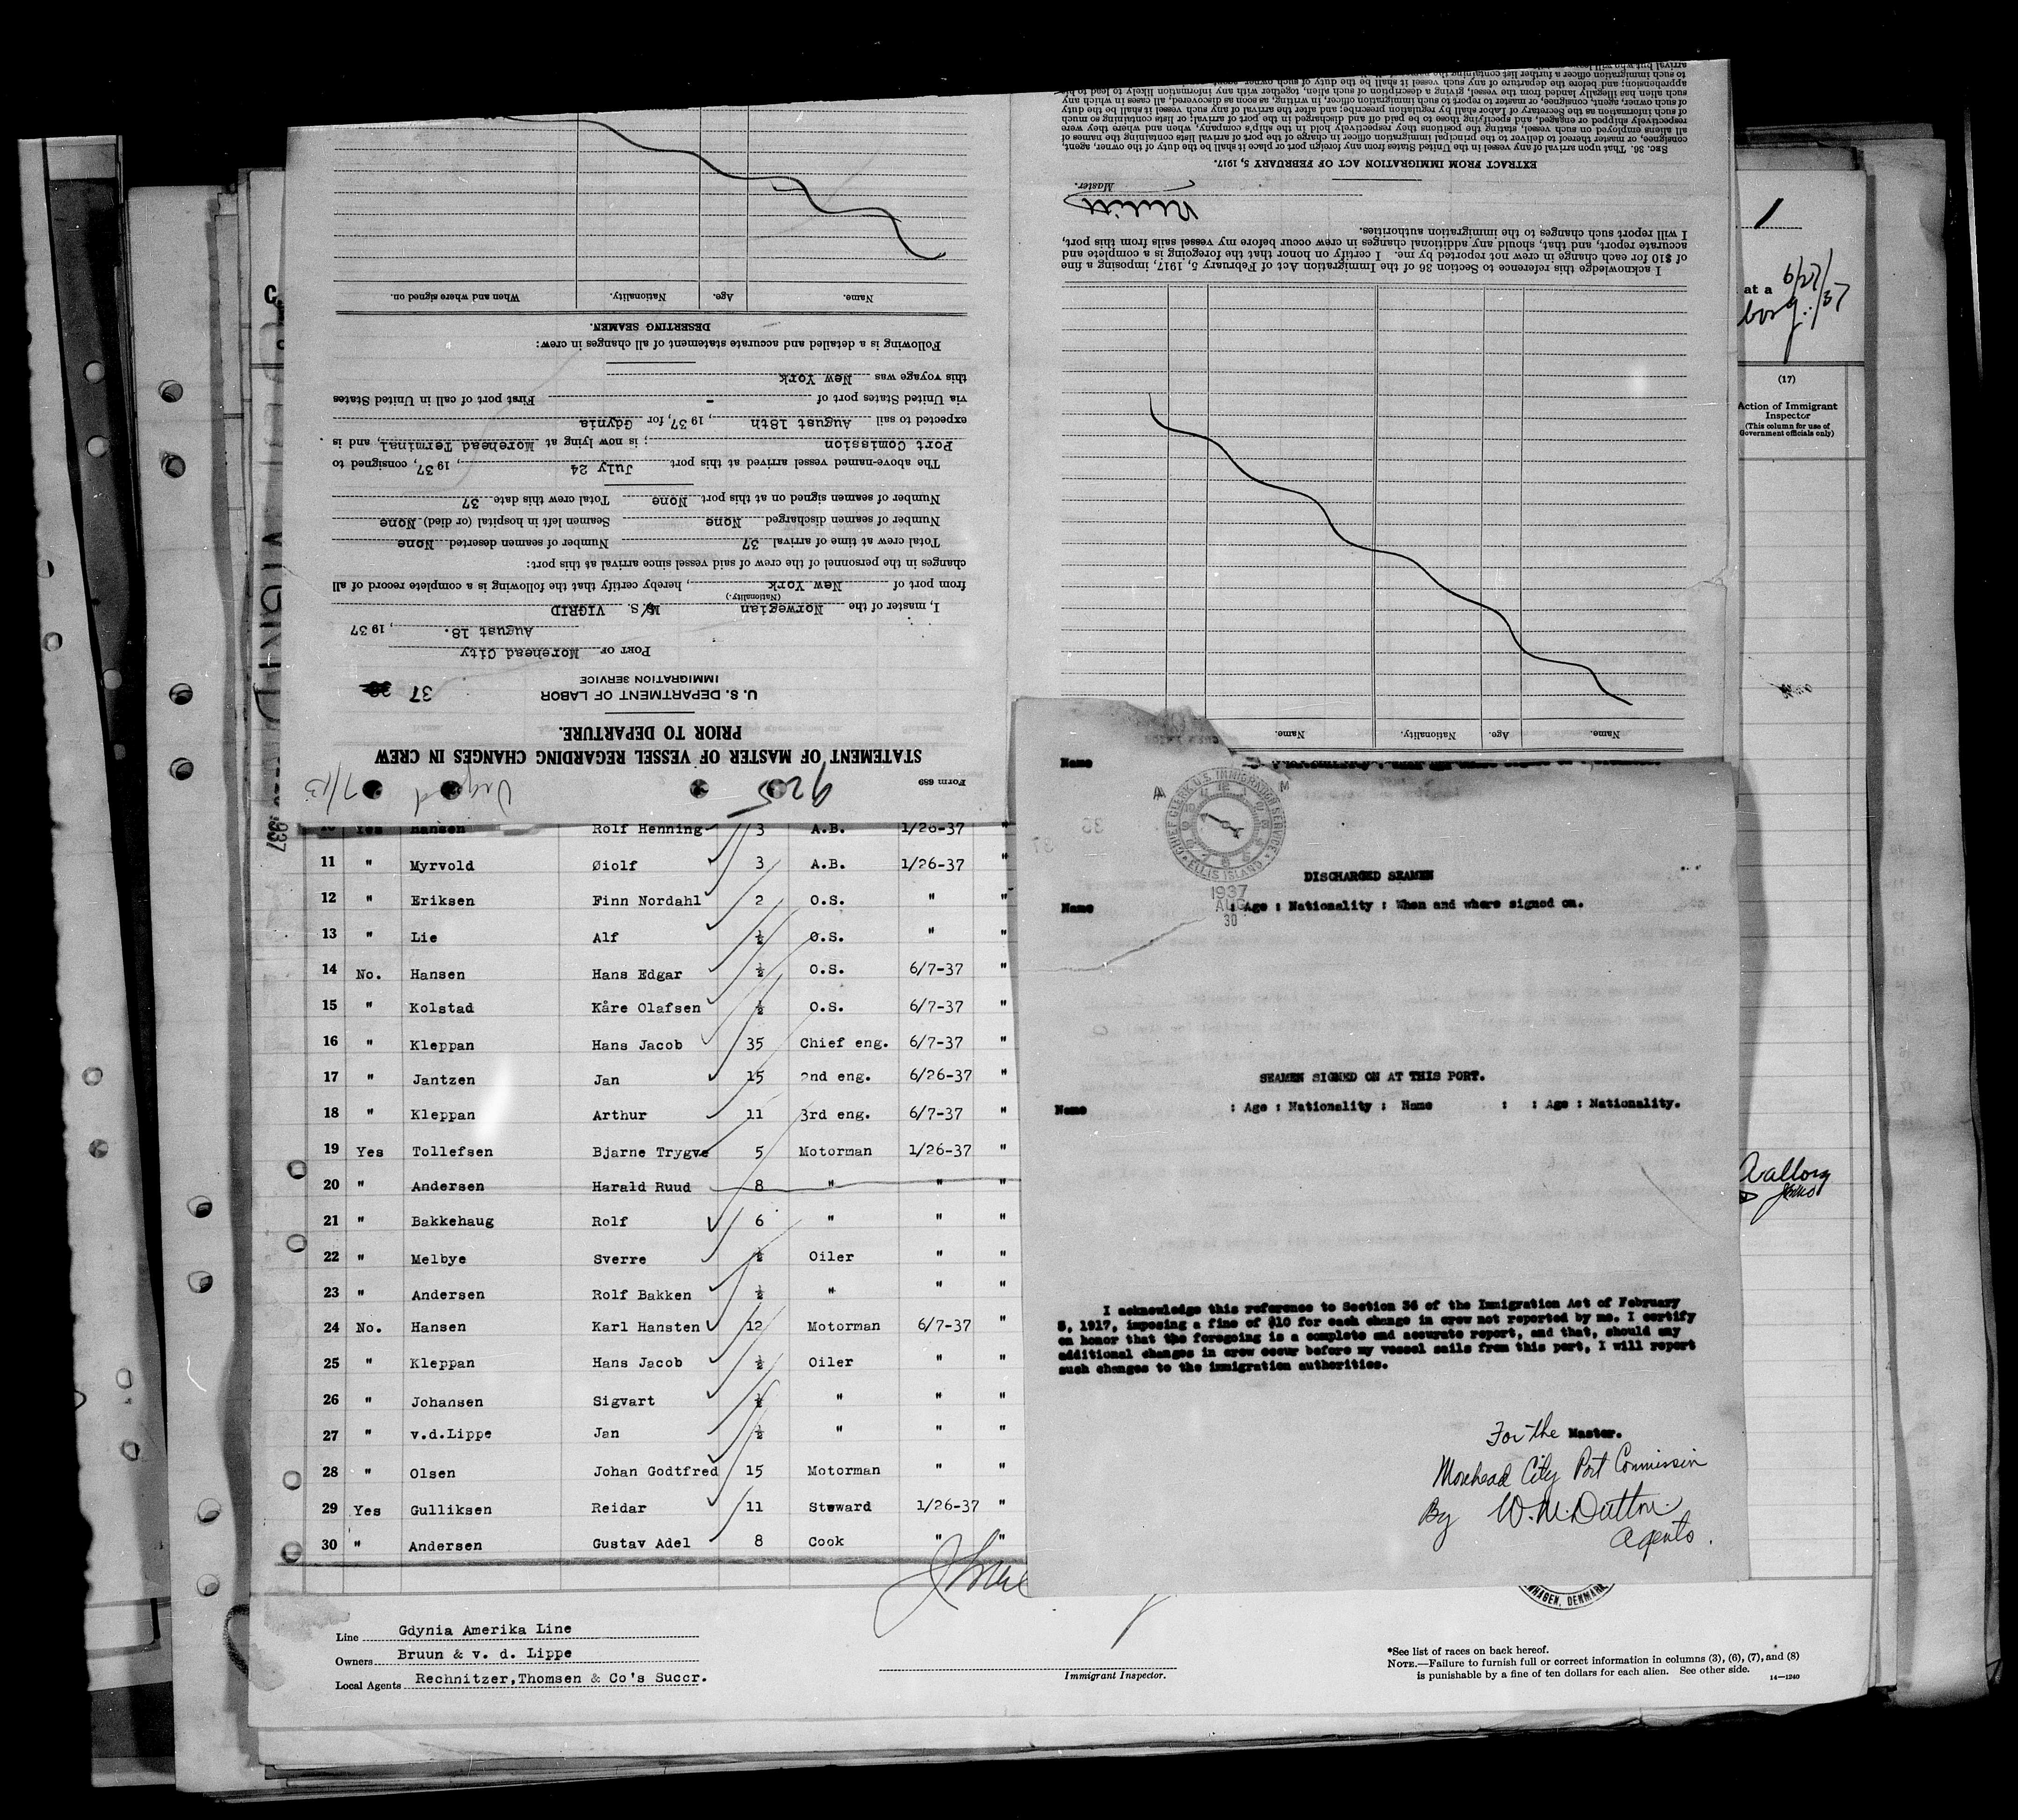 Form 689
925
Vigrid
7/13
STATEMENT OF MASTER OF VESSEL REGARDING CHANGES IN CREW
PRIOR TO DEPARTURE.
U. S. DEPARTMENT OF LABOR
IMMIGRATION SERVICE
37
PORT OF Morehead City
August 18. , 19 37
I, master of the Norwegian M/S. VIGRID
(Nationality.)
from port of New York , hereby certify that the following is a complete record of all
changes in the personnel of the crew of said vessel since arrival at this port:
Total crew at time of arrival 37 Number of seamen deserted None
Number of seamen discharged None Seamen left in hospital (or died) None
Number of seamen signed on at this port None Total crew this date 37
The above-named vessel arrived at this port July 24 , 19 37, consigned to
Port Comission ; is now lying at Morehead Terminal, and is
expected to sail August 18th , 19 37, for Gdynia
via United States port of - First port of call in United States
this voyage was New York
Following is a detailed and accurate statement of all changes in crew:
DESERTING SEAMEN.
Name. Age. Nationality. When and where signed on.
Name. Age. Nationality. Name.
I acknowledge this reference to Section 36 of the Immigration Act of February 5, 1917, imposing a fine
of $10 for each change in crew not reported by me. I certify on honor that the foregoing is a complete and
accurate report, and that, should any additional changes in crew occur before my vessel sails from this port,
I will report such changes to the immigration authorities.
Master.
EXTRACT FROM IMMIGRATION ACT OF FEBRUARY 5, 1917.
SEC. 36. That upon arrival of any vessel in the United States from any foreign port or place it shall be the duty of the owner, agent,
consignee, or master thereof to deliver to the principal immigration officer in charge of the port of arrival lists containing the names of
all aliens employed on such vessel, stating the positions they respectively hold in the ship's company, when and where they were
respectively shipped or engaged, and specifying those to be paid off and discharged in the port of arrival; or lists containing so much
of such information as the Secretary of Labor shall by regulation prescribe; and after the arrival of any such vessel it shall be the duty
of such owner, agent, consignee, or master to report to such immigration officer, in writing, as soon as discovered, all cases in which any
such alien has illegally landed from the vessel, giving a description of such alien, together with any information likely to lead to his
apprehension; and before the departure of any such vessel it shall be the duty of such owner, agent,
to such immigration officer a further list containing the
1
at a
6/27/37
borg.
(17)
Action of Immigrant
Inspector
(This column for use of
Government officials only)
937
Yes Hansen Rolf Henning 3 A.B. 1/26-37 "
11 " Myrvold Øiolf 3 A.B. 1/26-37
12 " Eriksen Finn Nordahl 2 O.S. " "
13 " Lie Alf ½ O.S. " "
14 No. Hansen Hans Edgar ½ O.S. 6/7-37 "
15 " Kolstad Kåre Olafsen ½ O.S. 6/7-37 "
16 " Kleppan Hans Jacob 35 Chief eng. 6/7-37 "
17 " Jantzen Jan 15 2nd eng. 6/26-37 "
18 " Kleppan Arthur 11 3rd eng. 6/7-37 "
19 Yes Tollefsen Bjarne Trygve 5 Motorman 1/26-37 "
20 " Andersen Harald Ruud 8 " " "
21 " Bakkehaug Rolf 6 " " "
22 " Melbye Sverre ½ Oiler " "
23 " Andersen Rolf Bakken ½ " " "
24 No. Hansen Karl Hansten 12 Motorman 6/7-37 "
25 " Kleppan Hans Jacob ½ Oiler " "
26 " Johansen Sigvart ½ " " "
27 " v.d.Lippe Jan ½ " " "
28 " Olsen Johan Godtfred 15 Motorman " "
29 Yes Gulliksen Reidar 11 Steward 1/26-37 "
30 " Andersen Gustav Adel 8 Cook " "
Name
CHIEF CLERK U.S. IMMIGRATION SERVICE
ELLIS ISLAND
A M
1937
AUG
30
DISCHARGED SEAMEN
Name : Age : Nationality : When and where signed on.
SEAMEN SIGNED ON AT THIS PORT.
Name : Age : Nationality : Name : : Age : Nationality.
I acknowledge this reference to Section 36 of the Immigration Act of February
5, 1917, imposing a fine of $10 for each change in crew not reported by me. I certify
on honor that the foregoing is a complete and accurate report, and that, should any
additional changes in crew occur before my vessel sails from this port, I will report
such changes to the immigration authorities.
For the Master.
Morehead City Port Commission
By W. M. Dutton
Agents.
HAGEN, DENMARK
Line Gdynia Amerika Line
Owners Bruun & v. d. Lippe
Local Agents Rechnitzer,Thomsen & Co's Succr.
Immigrant Inspector.
*See list of races on back hereof.
NOTE.—Failure to furnish full or correct information in columns (3), (6), (7), and (8)
is punishable by a fine of ten dollars for each alien. See other side.
14—1240